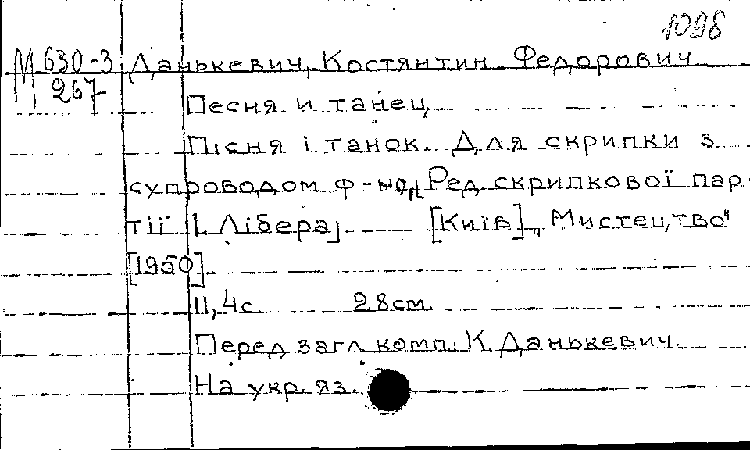 1098
М 630-3 Данькевич, Костянтин Федорович
267 Песня и танец
Пісня і танок. Для скрипки з
супроводом ф-но, Ред. скрипкової пар-
тії І. Лібера]. [Київ], „Мистецтво"
[1950].
11, 4 с. 28 см.
Перед загл. комп. К. Данькевич.
На укр. яз.